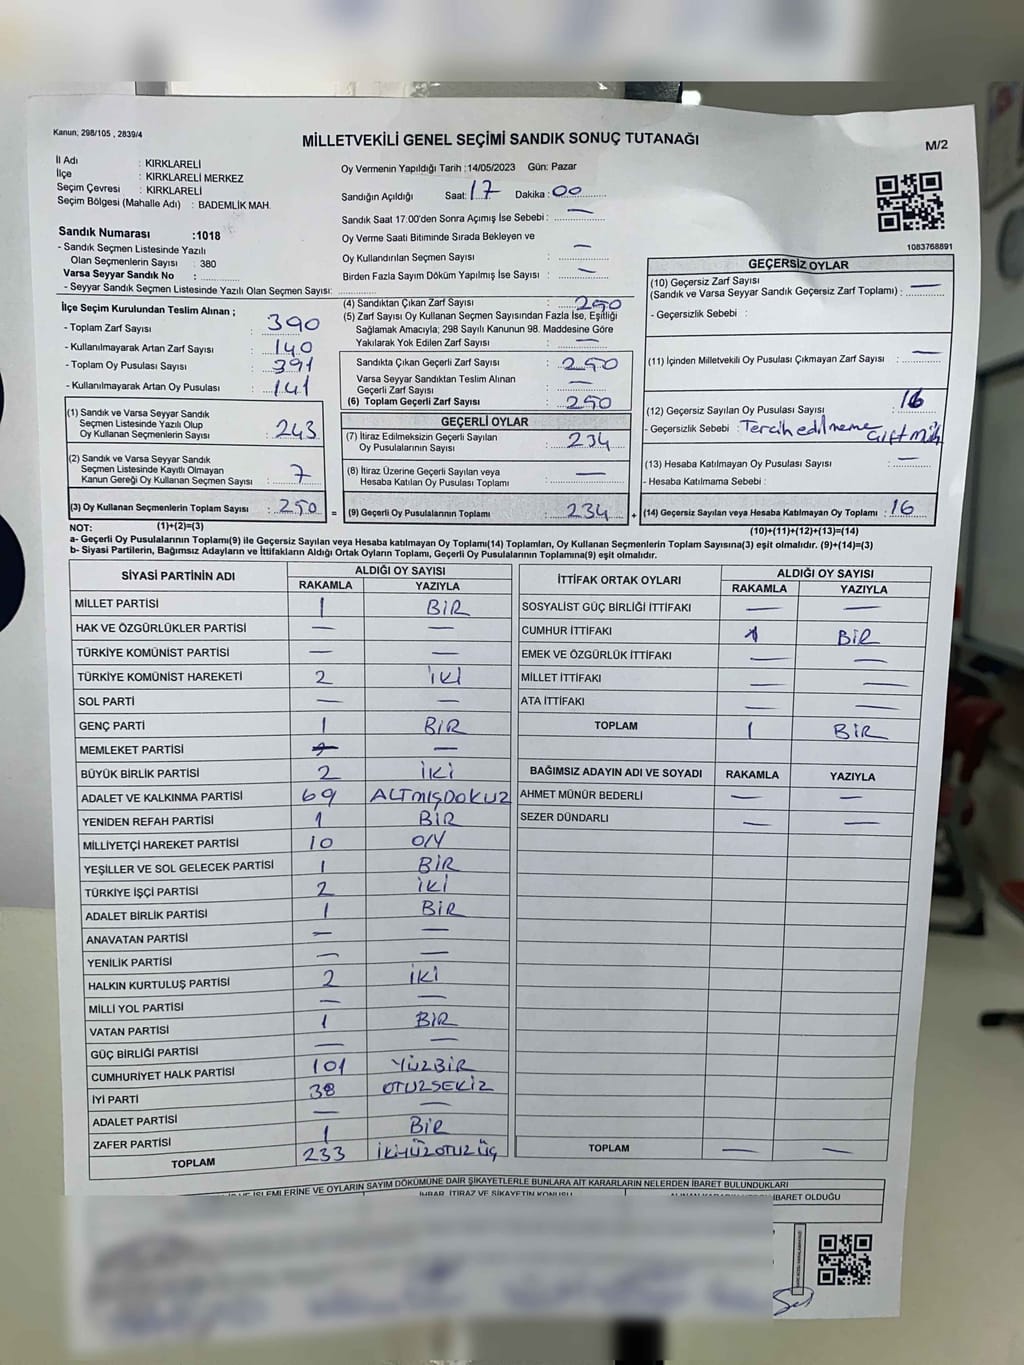 Kanun, 298/105 , 2839/4
MİLLETVEKİLİ GENEL SEÇİMİ SANDIK SONUÇ TUTANAĞI
M/2
İl Adı : KIRKLARELİ
İlçe : KIRKLARELİ MERKEZ
Seçim Çevresi : KIRKLARELİ
Seçim Bölgesi (Mahalle Adı) : BADEMLİK MAH.
Sandık Numarası :1018
- Sandık Seçmen Listesinde Yazılı
Olan Seçmenlerin Sayısı : 380
Varsa Seyyar Sandık No :
- Seyyar Sandık Seçmen Listesinde Yazılı Olan Seçmen Sayısı:
Oy Vermenin Yapıldığı Tarih :14/05/2023 Gün: Pazar
Sandığın Açıldığı Saat: 17 Dakika : 00
Sandık Saat 17:00'den Sonra Açımış İse Sebebi : —
Oy Verme Saati Bitiminde Sırada Bekleyen ve
Oy Kullandırılan Seçmen Sayısı : —
Birden Fazla Sayım Döküm Yapılmış İse Sayısı : —
1083768891
İlçe Seçim Kurulundan Teslim Alınan ;
- Toplam Zarf Sayısı : 390
- Kullanılmayarak Artan Zarf Sayısı : 140
- Toplam Oy Pusulası Sayısı : 391
- Kullanılmayarak Artan Oy Pusulası : 141
(1) Sandık ve Varsa Seyyar Sandık
Seçmen Listesinde Yazılı Olup
Oy Kullanan Seçmenlerin Sayısı : 243
(2) Sandık ve Varsa Seyyar Sandık
Seçmen Listesinde Kayıtlı Olmayan
Kanun Gereği Oy Kullanan Seçmen Sayısı : 7
(3) Oy Kullanan Seçmenlerin Toplam Sayısı : 250 =
(4) Sandıktan Çıkan Zarf Sayısı : 250
(5) Zarf Sayısı Oy Kullanan Seçmen Sayısından Fazla İse, Eşitliği
Sağlamak Amacıyla; 298 Sayılı Kanunun 98. Maddesine Göre
Yakılarak Yok Edilen Zarf Sayısı : —
Sandıkta Çıkan Geçerli Zarf Sayısı : 250
Varsa Seyyar Sandıktan Teslim Alınan
Geçerli Zarf Sayısı : —
(6) Toplam Geçerli Zarf Sayısı : 250
GEÇERLİ OYLAR
(7) İtiraz Edilmeksizin Geçerli Sayılan
Oy Pusulası Sayısı : 234
(8) İtiraz Üzerine Geçerli Sayılan veya
Hesaba Katılan Oy Pusulası Toplamı : —
(9) Geçerli Oy Pusulalarının Toplamı : 234 +
GEÇERSİZ OYLAR
(10) Geçersiz Zarf Sayısı
(Sandık ve Varsa Seyyar Sandık Geçersiz Zarf Toplamı) : —
- Geçersizlik Sebebi :
(11) İçinden Milletvekili Oy Pusulası Çıkmayan Zarf Sayısı : —
(12) Geçersiz Sayılan Oy Pusulası Sayısı : 16
- Geçersizlik Sebebi : Tercih edilmeme Çift Müh
(13) Hesaba Katılmayan Oy Pusulası Sayısı : —
- Hesaba Katılmama Sebebi :
(14) Geçersiz Sayılan veya Hesaba Katılmayan Oy Toplamı : 16
NOT: (1)+(2)=(3)
(10)+(11)+(12)+(13)=(14)
a- Geçerli Oy Pusulalarının Toplamı(9) ile Geçersiz Sayılan veya Hesaba katılmayan Oy Toplamı(14) Toplamları, Oy Kullanan Seçmenlerin Toplam Sayısına(3) eşit olmalıdır. (9)+(14)=(3)
b- Siyasi Partilerin, Bağımsız Adayların ve İttifakların Aldığı Ortak Oyların Toplamı, Geçerli Oy Pusulalarının Toplamına(9) eşit olmalıdır.
SİYASİ PARTİNİN ADI ALDIĞI OY SAYISI
RAKAMLA YAZIYLA
MİLLET PARTİSİ 1 BİR
HAK VE ÖZGÜRLÜKLER PARTİSİ — —
TÜRKİYE KOMÜNİST PARTİSİ — —
TÜRKİYE KOMÜNİST HAREKETİ 2 İKİ
SOL PARTİ — —
GENÇ PARTİ 1 BİR
MEMLEKET PARTİSİ —
BÜYÜK BİRLİK PARTİSİ 2 İKİ
ADALET VE KALKINMA PARTİSİ 69 ALTMIŞDOKUZ
YENİDEN REFAH PARTİSİ 1 BİR
MİLLİYETÇİ HAREKET PARTİSİ 10 ON
YEŞİLLER VE SOL GELECEK PARTİSİ 1 BİR
TÜRKİYE İŞÇİ PARTİSİ 2 İKİ
ADALET BİRLİK PARTİSİ 1 BİR
ANAVATAN PARTİSİ — —
YENİLİK PARTİSİ — —
HALKIN KURTULUŞ PARTİSİ 2 İKİ
MİLLİ YOL PARTİSİ — —
VATAN PARTİSİ 1 BİR
GÜÇ BİRLİĞİ PARTİSİ — —
CUMHURİYET HALK PARTİSİ 101 YÜZBİR
İYİ PARTİ 38 OTUZSEKİZ
ADALET PARTİSİ — —
ZAFER PARTİSİ 1 BİR
TOPLAM 233 İKİYÜZOTUZÜÇ
İTTİFAK ORTAK OYLARI ALDIĞI OY SAYISI
RAKAMLA YAZIYLA
SOSYALİST GÜÇ BİRLİĞİ İTTİFAKI — —
CUMHUR İTTİFAKI 1 BİR
EMEK VE ÖZGÜRLÜK İTTİFAKI — —
MİLLET İTTİFAKI — —
ATA İTTİFAKI — —
TOPLAM 1 BİR
BAĞIMSIZ ADAYIN ADI VE SOYADI RAKAMLA YAZIYLA
AHMET MÜNÜR BEDERLİ — —
SEZER DÜNDARLI — —
TOPLAM — —
İŞLEMLERİNE VE OYLARIN SAYIM DÖKÜMÜNE DAİR ŞİKAYETLERLE BUNLARA AİT KARARLARIN NELERDEN İBARET BULUNDUKLARI
İHBAR, İTİRAZ VE ŞİKAYETİN KONUSU
İBARET OLDUĞU